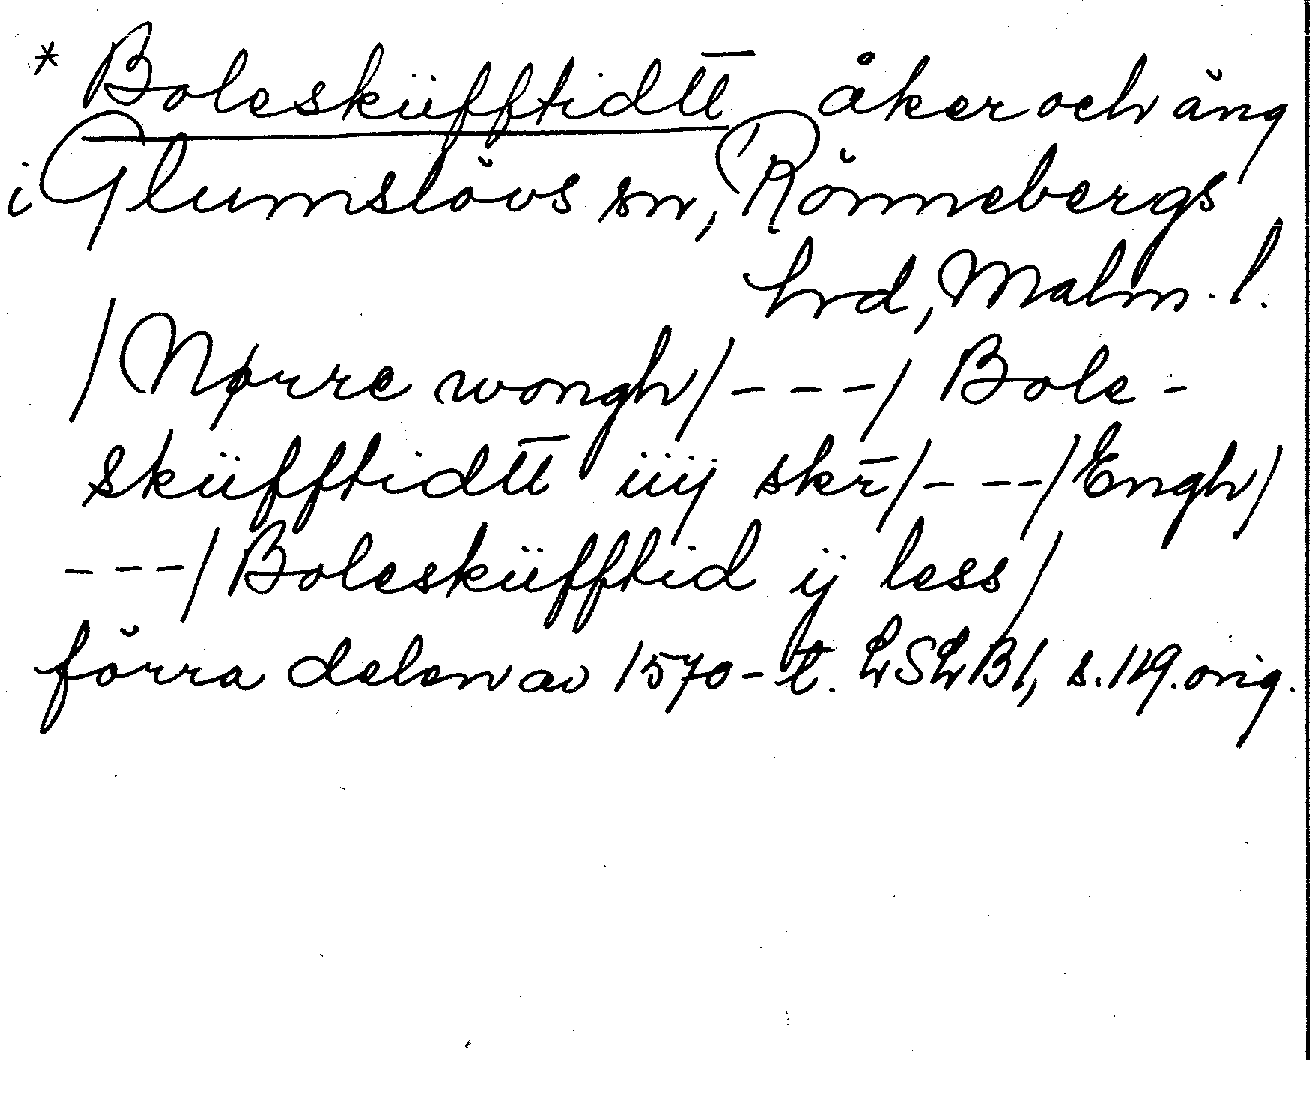 * Boleskŭfftidtt̄ åker och äng
i Glumslövs sn, Rönnebergs
hrd, Malm. l.
/Nørre wongh/ - - - / Bole-
skŭfftidtt̄ iiij skr̄/ - - - /Engh/
- - - / Boleskŭfftid ij less/
förra delen av 1570-t. LSLB1, s. 119. orig.